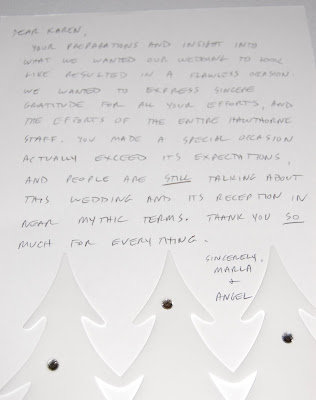 DEAR KAREN,
YOUR PREPARATIONS AND INSIGHT INTO
WHAT WE WANTED OUR WEDDING TO LOOK
LIKE RESULTED IN A FLAWLESS OCCASION.
WE WANTED TO EXPRESS SINCERE
GRATITUDE FOR ALL YOUR EFFORTS, AND
THE EFFORTS OF THE ENTIRE HAWTHORNE
STAFF. YOU MADE A SPECIAL OCCASION
ACTUALLY EXCEED ITS EXPECTATIONS,
AND PEOPLE ARE STILL TALKING ABOUT
THIS WEDDING AND ITS RECEPTION IN
NEAR MYTHIC TERMS. THANK YOU SO
MUCH FOR EVERYTHING.
SINCERELY,
MARLA
+
ANGEL